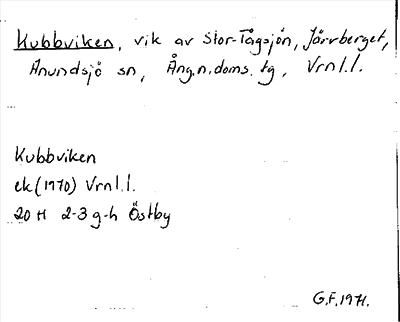 Kubbviken, vik av Stor-Tågsjön, Järvberget,
Anundsjö sn, Ång.n.doms.tg, Vrnl.l.
Kubbviken
ek(1970) Vrnl.l.
20 H 2-3 g-h Östby
G.F. 1971.